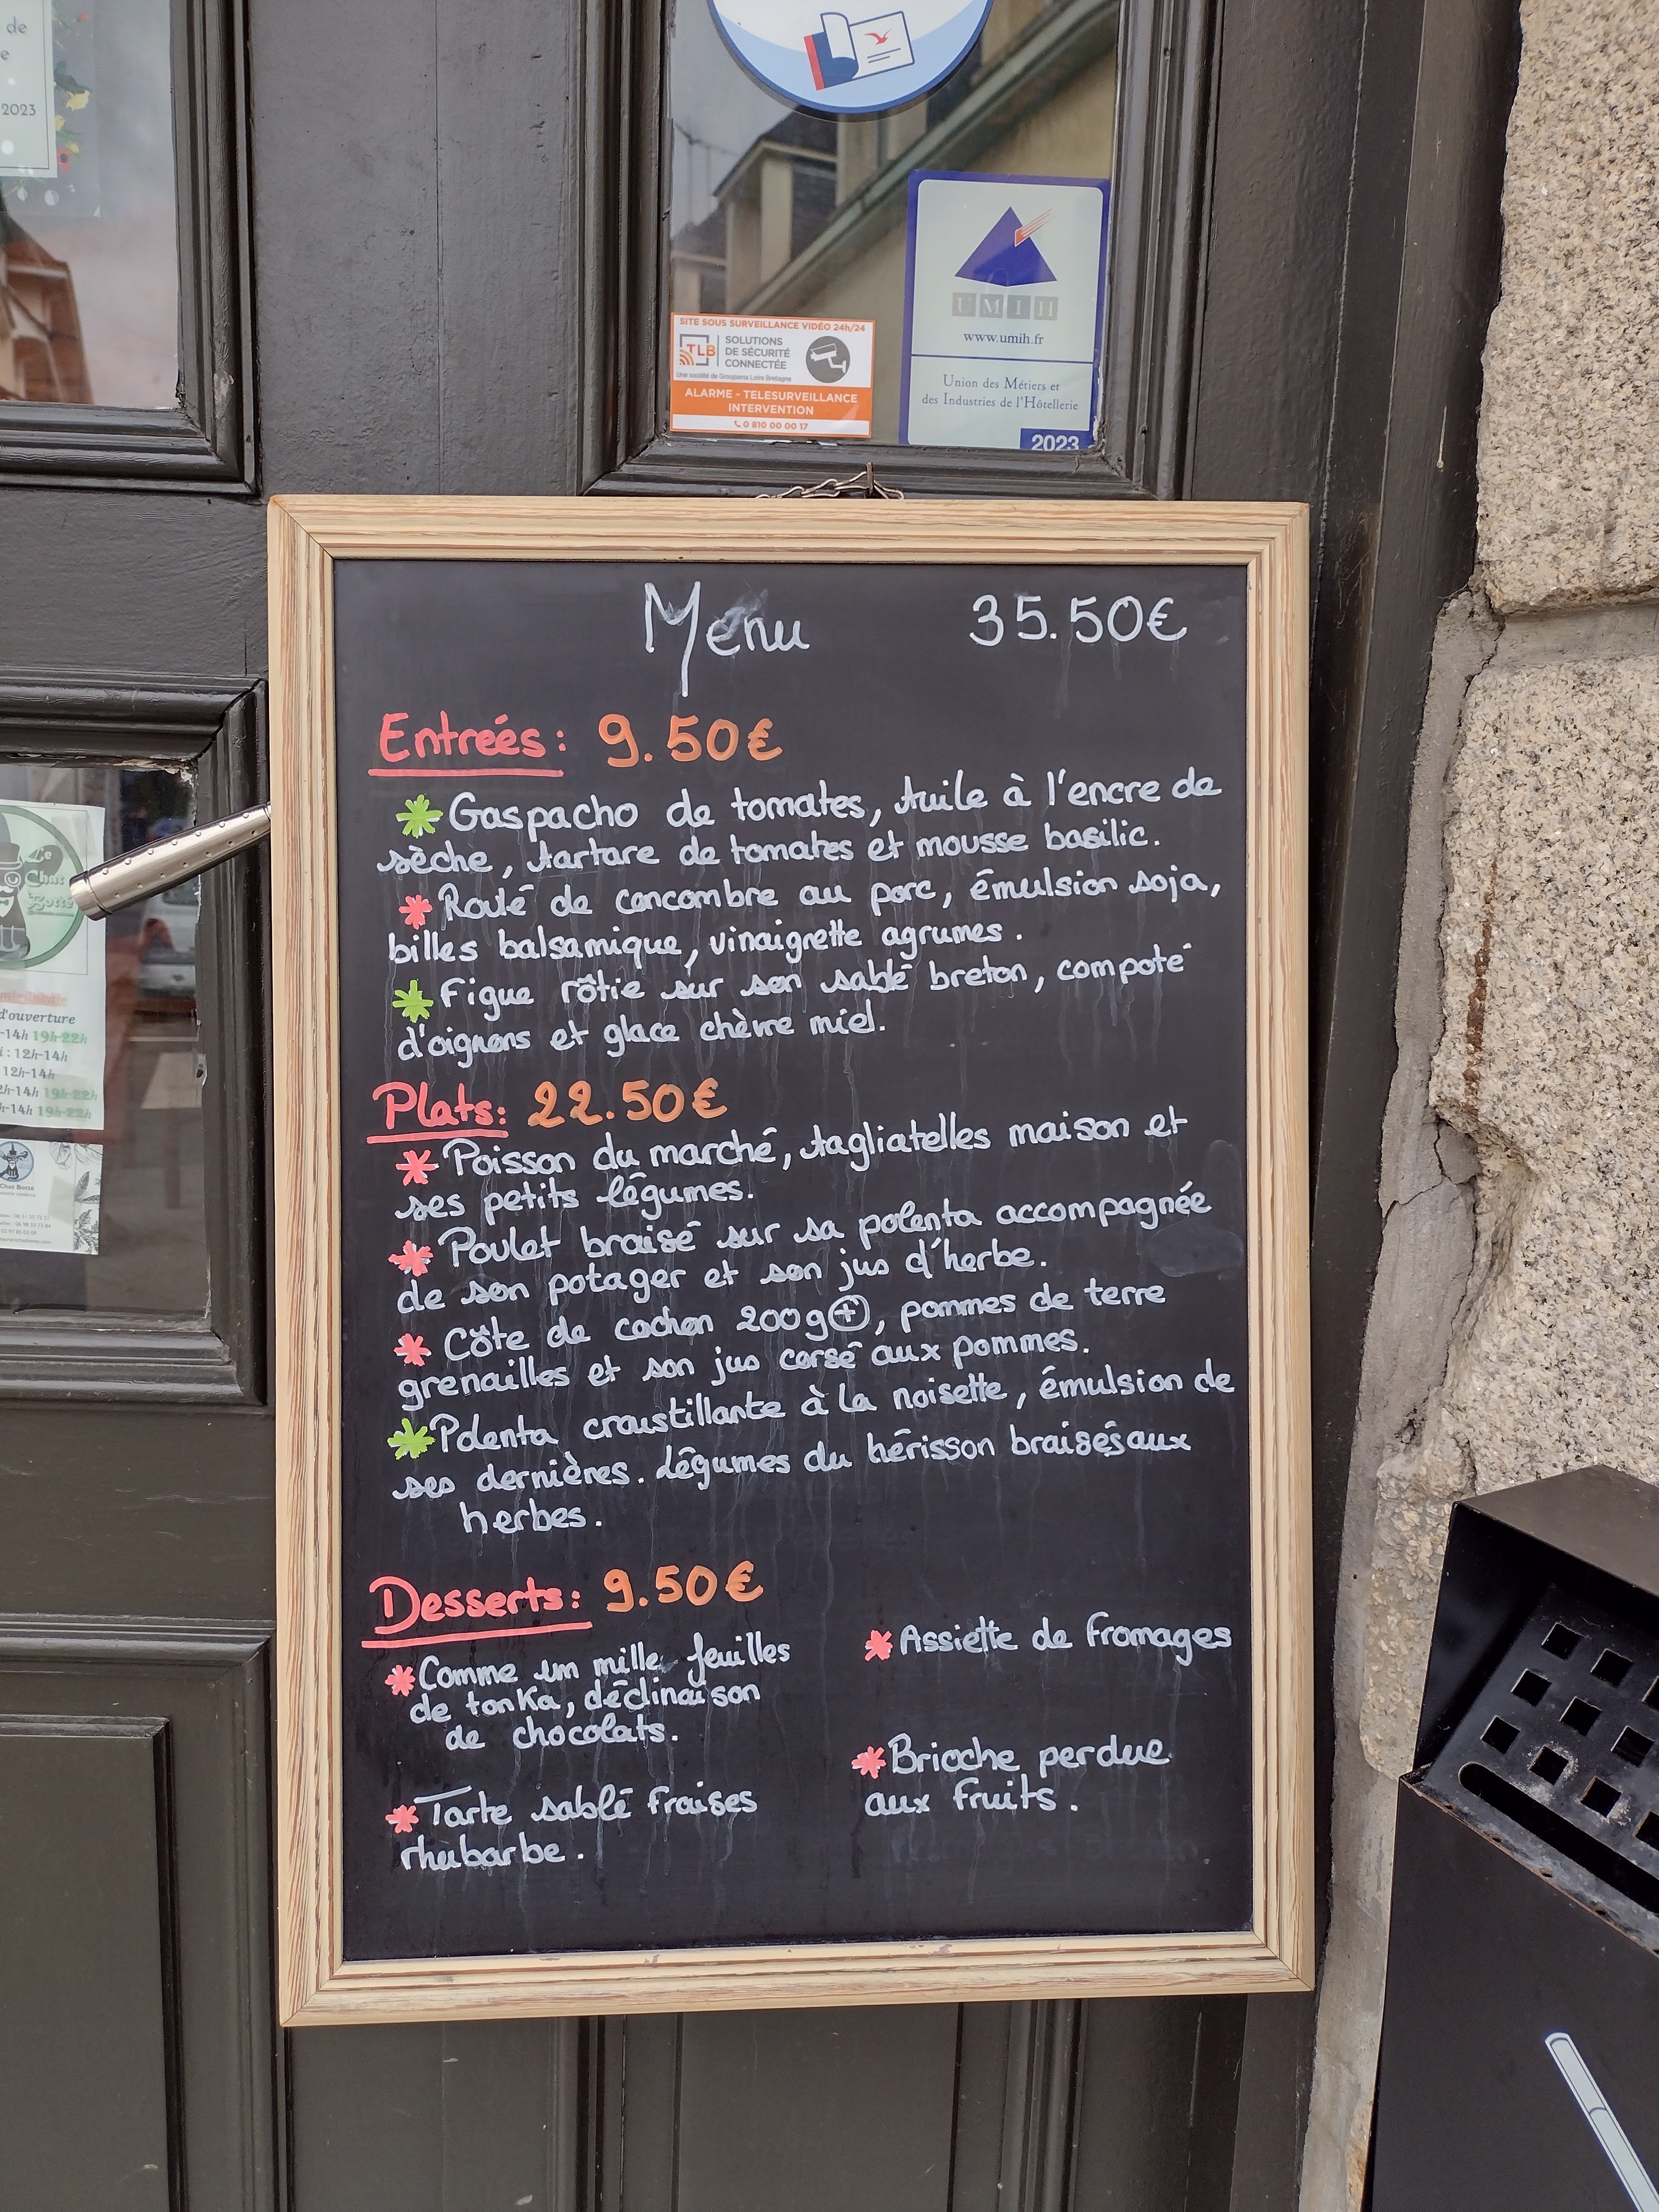 de
e
2023
SITE SOUS SURVEILLANCE VIDÉO 24h/24
TLB
SOLUTIONS
DE SÉCURITÉ
CONNECTÉE
Une société de Groupama Loire Bretagne
ALARME - TELESURVEILLANCE
INTERVENTION
0 810 00 00 17
UMIH
www.umih.fr
Union des Métiers et
des Industries de l'Hôtellerie
2023
Menu 35.50€
Entreés: 9.50€
* Gaspacho de tomates, tuile à l'encre de
sèche, tartare de tomates et mousse basilic.
* Roulé de concombre au porc, émulsion soja,
billes balsamique, vinaigrette agrumes.
* Figue rôtie sur son sablé breton, compoté
d'oignons et glace chèvre miel.
Plats: 22.50€
* Poisson du marché, tagliatelles maison et
ses petits légumes.
* Poulet braisé sur sa polenta accompagnée
de son potager et son jus d'herbe.
* Côte de cochon 200g+, pommes de terre
grenailles et son jus corsé aux pommes.
* Polenta croustillante à la noisette, émulsion de
ses dernières. Légumes du hérisson braisés aux
herbes.
Desserts: 9.50€
* Comme un mille feuilles
de tonka, déclinaison
de chocolats.
* Tarte sablé fraises
rhubarbe.
* Assiette de fromages
* Brioche perdue
aux fruits.
Chat
Botté
d'ouverture
-14h 19h-22h
i : 12h-14h
12h-14h
2h-14h 19h-22h
h-14h 19h-22h
Chat Botté